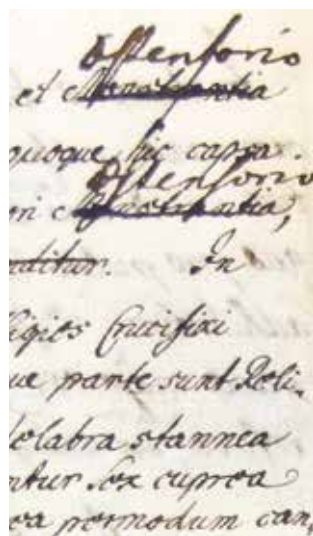 Ostensorio
et Monstrantia
quoque hic capsa.
Ostensorio
ori e Monstrantia,
nditur. In
figies Crucifixi
ue parte sunt Reli-
delabra stannea
ntur sex cuprea
ea permodum can,